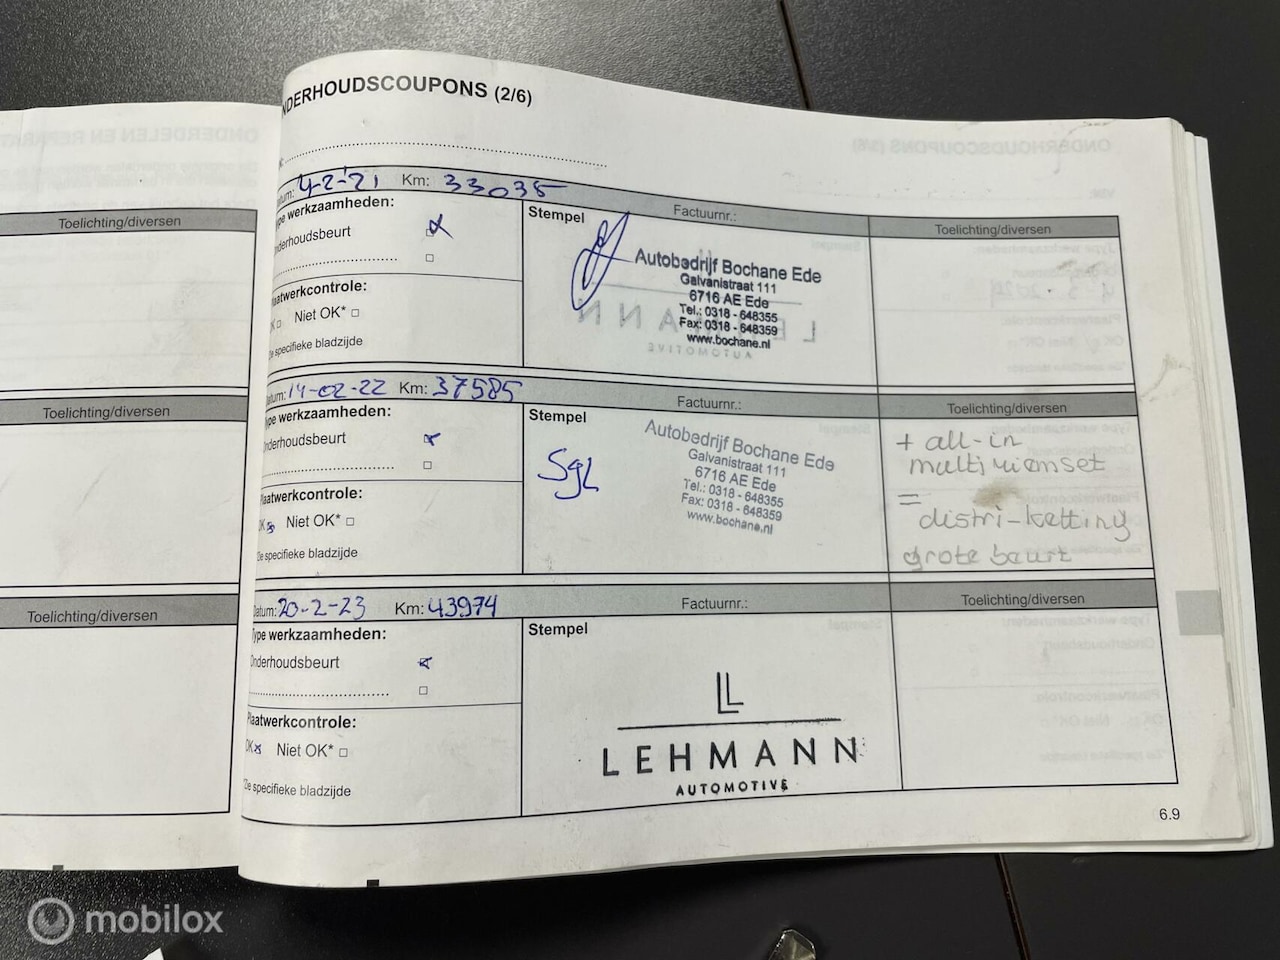 ONDERHOUDSCOUPONS (2/6)
Datum: 4-2-'21 Km: 33035
Factuurnr.:
Type werkzaamheden:
Onderhoudsbeurt
Plaatwerkcontrole:
OK Niet OK*
*De specifieke bladzijde
Stempel
Autobedrijf Bochane Ede
Galvanistraat 111
6716 AE Ede
Tel.: 0318 - 648355
Fax: 0318 - 648359
www.bochane.nl
Toelichting/diversen
Datum: 14-02-22 Km: 37585
Factuurnr.:
Type werkzaamheden:
Onderhoudsbeurt
Plaatwerkcontrole:
OK Niet OK*
*De specifieke bladzijde
Stempel
Sgl
Autobedrijf Bochane Ede
Galvanistraat 111
6716 AE Ede
Tel.: 0318 - 648355
Fax: 0318 - 648359
www.bochane.nl
Toelichting/diversen
+ all-in
multiriemset
=
distri-ketting
grote beurt
Datum: 20-2-23 Km: 43974
Factuurnr.:
Type werkzaamheden:
Onderhoudsbeurt
Plaatwerkcontrole:
OK Niet OK*
*De specifieke bladzijde
Stempel
LL
LEHMANN
AUTOMOTIVE
Toelichting/diversen
6.9
Toelichting/diversen
Toelichting/diversen
Toelichting/diversen
mobilox